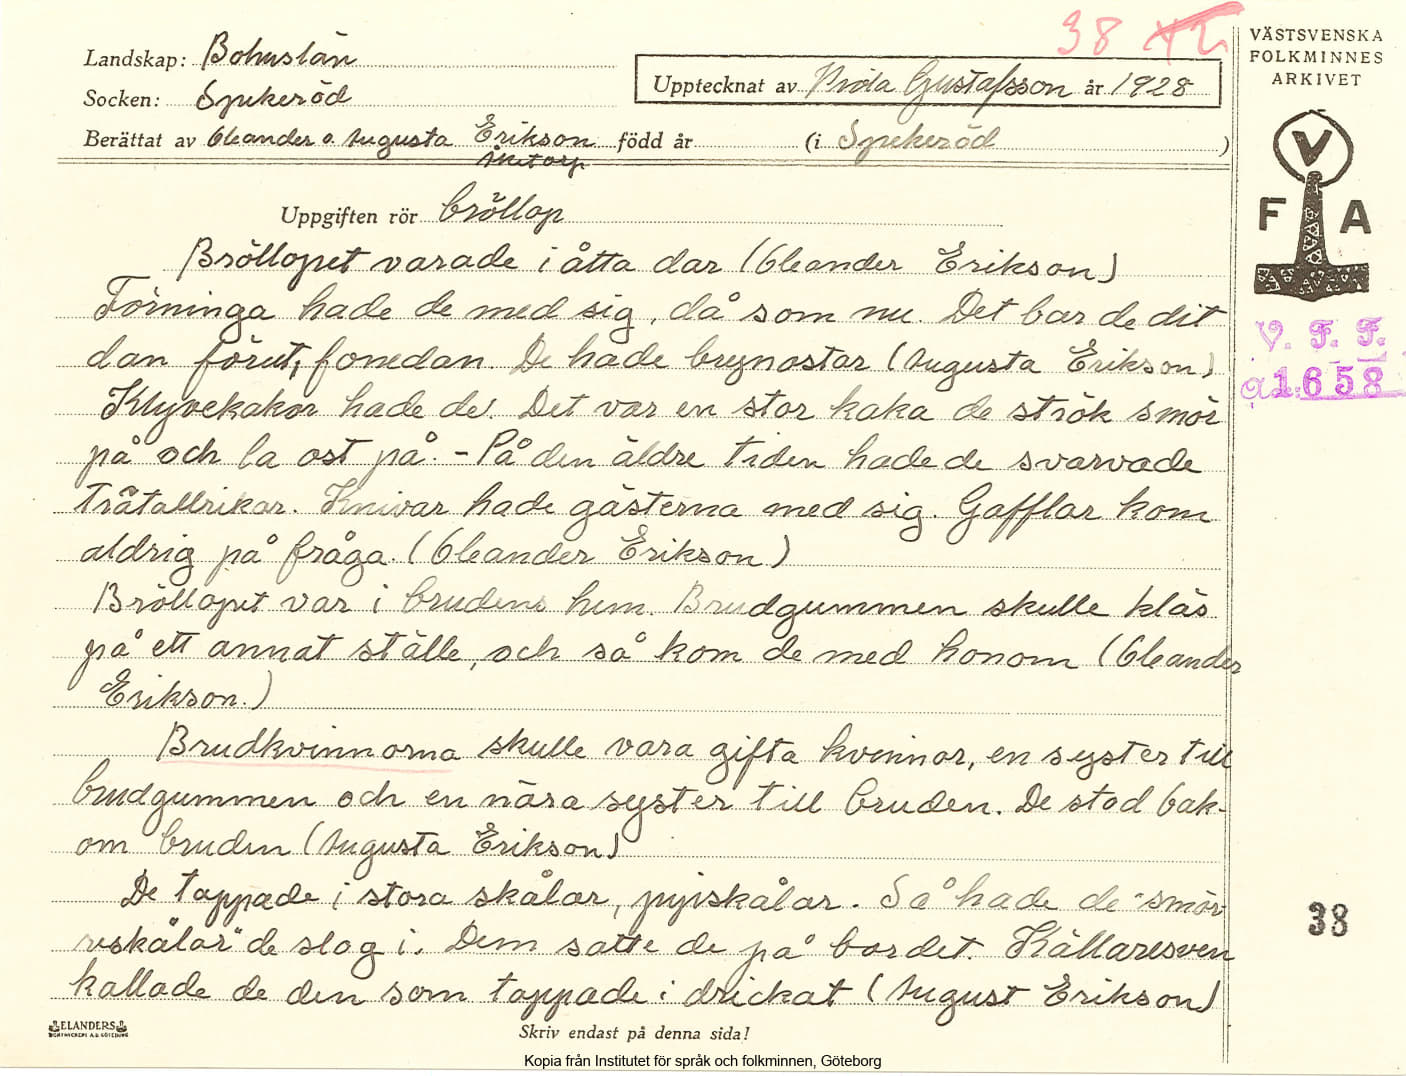 38
VÄSTSVENSKA
FOLKMINNES
ARKIVET
Landskap: Bohuslän
Socken: Spekeröd
Upptecknat av Frida Gustafsson år 1928
Berättat av Oleander o. Augusta Erikson född år (i Spekeröd)
Åketorp
Uppgiften rör bröllop
V
F A
V. F. F.
1658
Bröllopet varade i åtta dar (Oleander Erikson)
Förninga hade de med sig, då som nu. Det bar de dit
dan förut, fonedan. De hade brynostar (Augusta Erikson)
Klyvekakor hade de. Det var en stor kaka de strök smör
på och la ost på. - På den äldre tiden hade de svarvade
trätallrikar. Knivar hade gästerna med sig. Gafflar kom
aldrig på fråga. (Oleander Erikson)
Bröllopet var i brudens hem. Brudgummen skulle kläs
på ett annat ställe, och så kom de med honom (Oleander
Erikson.)
Brudkvinnorna skulle vara gifta kvinnor, en syster till
brudgummen och en nära syster till bruden. De stod bak-
om bruden (Augusta Erikson)
De tappade i stora skålar, pipiskålar. Så hade de "smör-
reskålar" de slog i. Dem satte de på bordet. Källaresven
kallade de den som tappade i drickat (August Erikson)
38
ELANDERS
BOKTRYCKERI A.B. GÖTEBORG
Skriv endast på denna sida!
Kopia från Institutet för språk och folkminnen, Göteborg